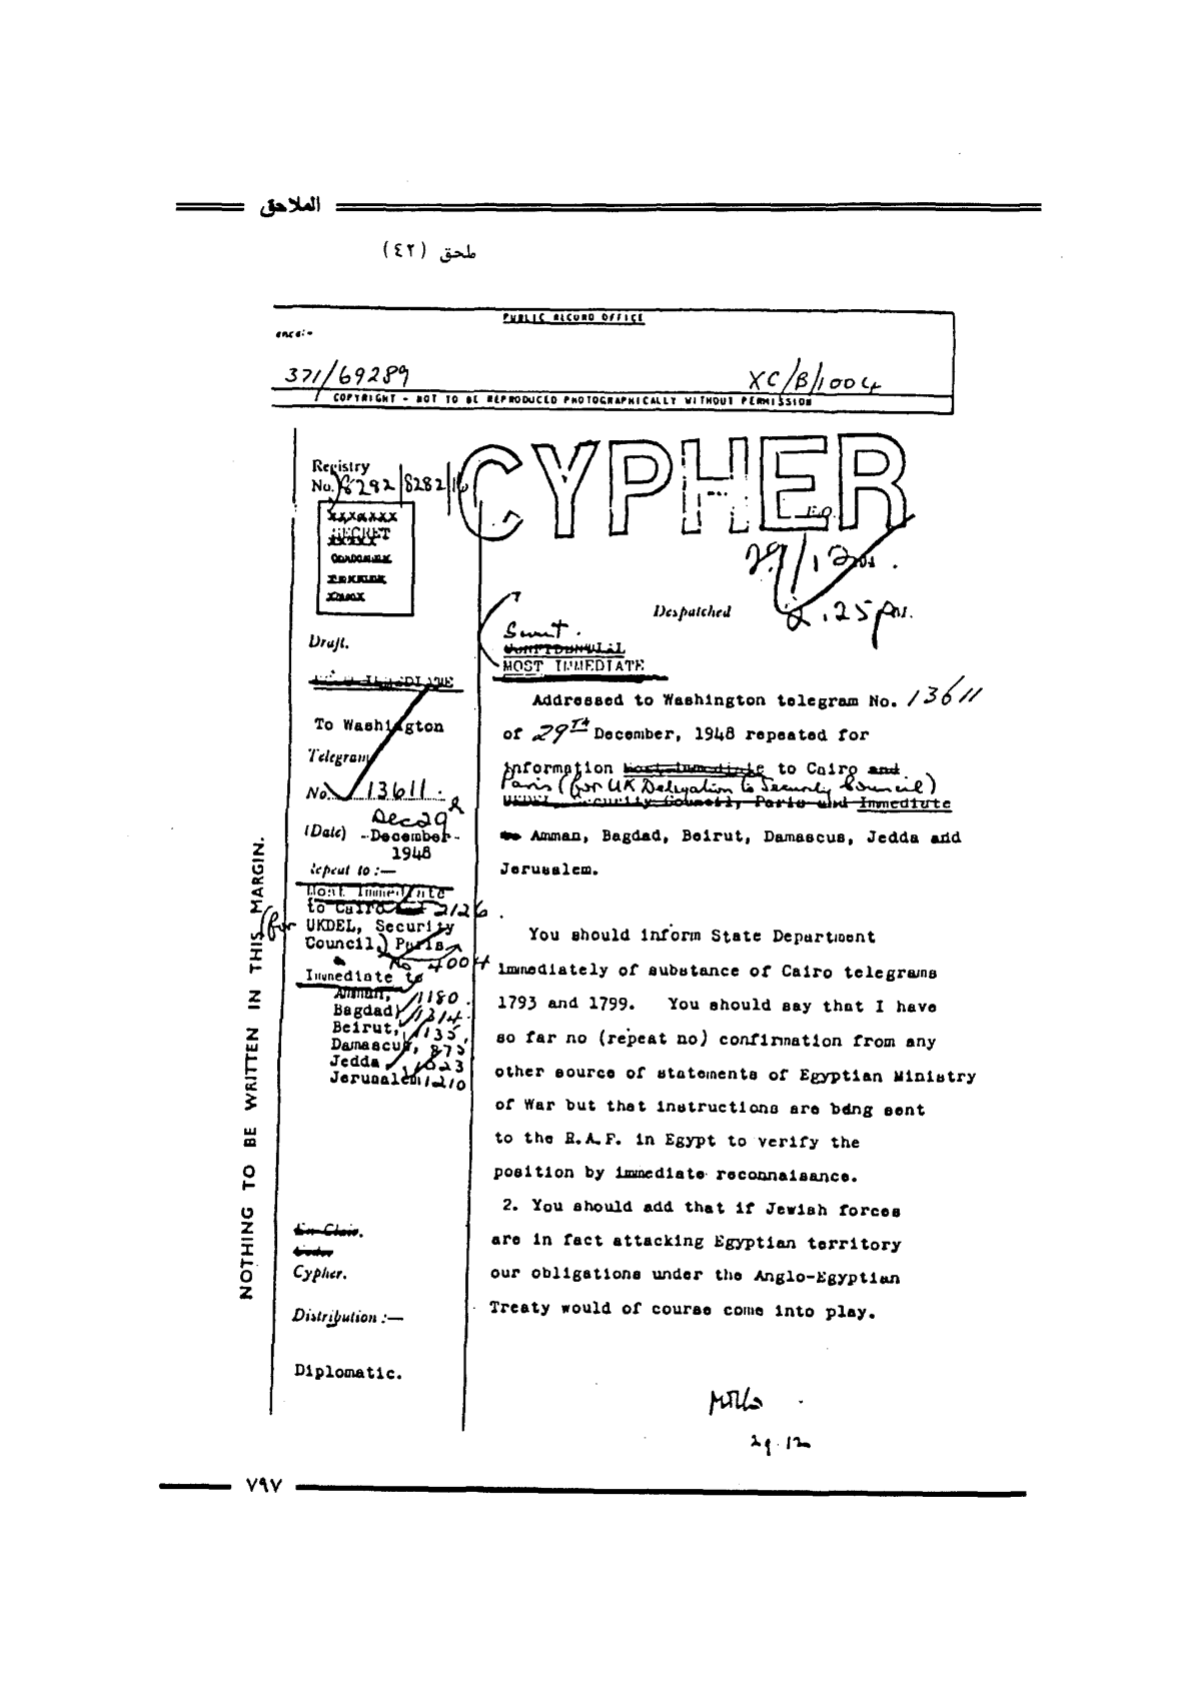 الملاحق
ملحق (٤٢)
PUBLIC RECORD OFFICE
ence:-
371/69289 XC/B/1004
COPYRIGHT - NOT TO BE REPRODUCED PHOTOGRAPHICALLY WITHOUT PERMISSION
CYPHER
Registry
No. 8282/8282/16
SECRET
29/12
Despatched 2.25 pm.
Draft.
To Washington
Telegram
No. 13611
Dec 29
(Date) -December-
1948
Repeat to :—
Most Immediate
to Cairo 2126
(for UKDEL, Security
Council,) Paris
No 4004
Immediate to
Amman, 1180
Bagdad, 1314
Beirut, 1135
Damascus, 875
Jedda 1023
Jerusalem 1210
En Clair.
Code
Cypher.
Distribution :—
Diplomatic.
NOTHING TO BE WRITTEN IN THIS MARGIN.
Secret.
CONFIDENTIAL
MOST IMMEDIATE
Addressed to Washington telegram No. 13611
of 29th December, 1948 repeated for
information Most Immediate to Cairo and
Paris (for UK Delegation to Security Council)
UKDEL Security Council, Paris and Immediate
Amman, Bagdad, Beirut, Damascus, Jedda and
Jerusalem.
You should inform State Department
immediately of substance of Cairo telegrams
1793 and 1799. You should say that I have
so far no (repeat no) confirmation from any
other source of statements of Egyptian Ministry
of War but that instructions are bdng sent
to the R.A.F. in Egypt to verify the
position by immediate reconnaisance.
2. You should add that if Jewish forces
are in fact attacking Egyptian territory
our obligations under the Anglo-Egyptian
Treaty would of course come into play.
29.12
٧٩٧